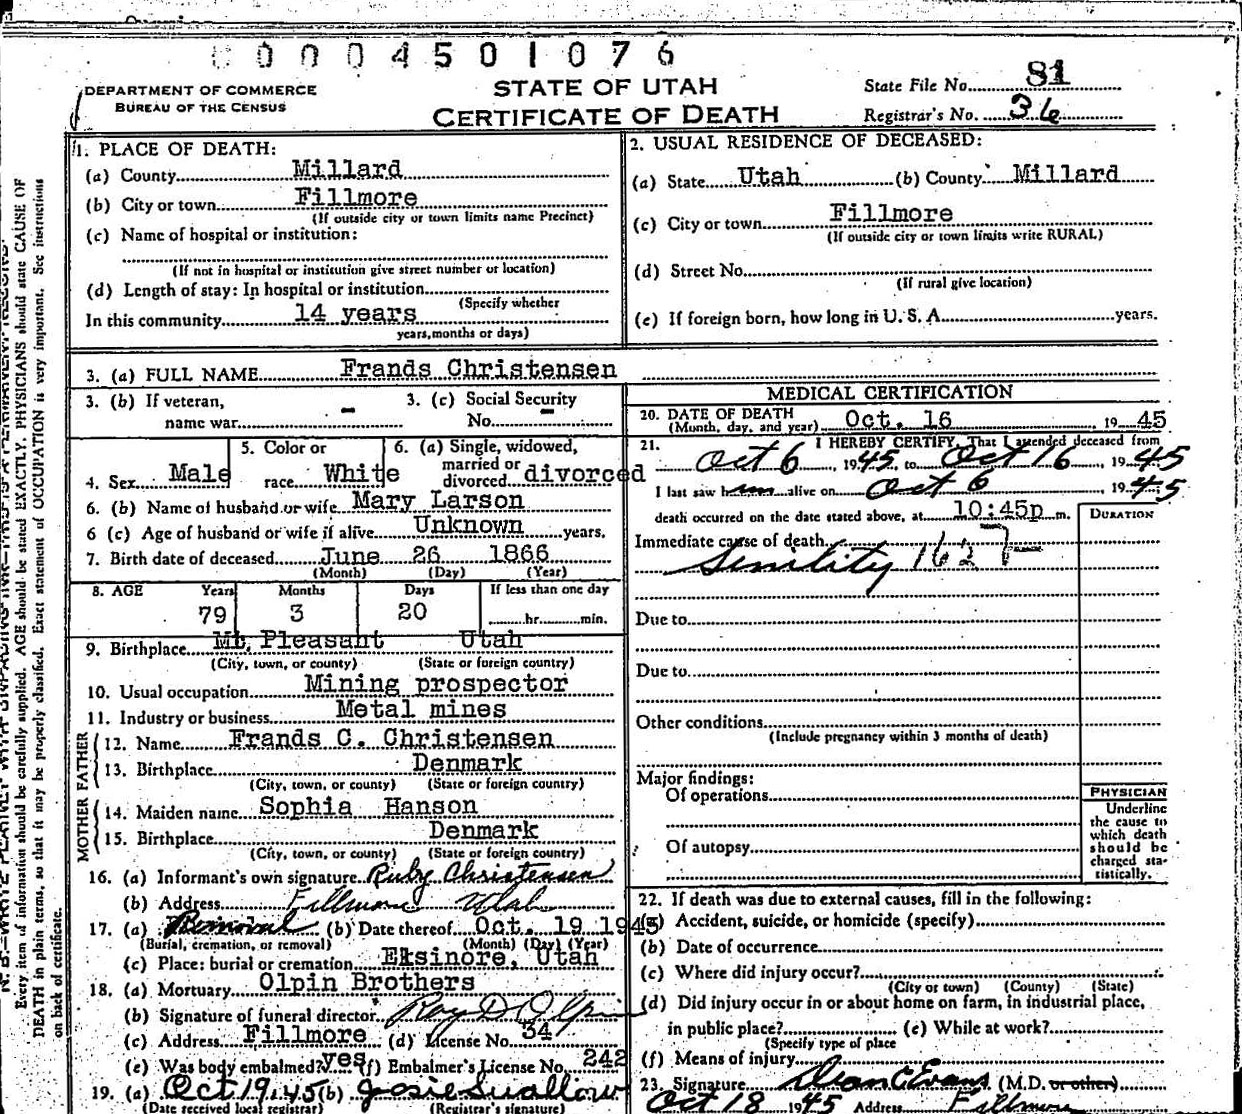 00004501076
DEPARTMENT OF COMMERCE
BUREAU OF THE CENSUS
STATE OF UTAH
CERTIFICATE OF DEATH
State File No. 81
Registrar's No. 36
1. PLACE OF DEATH:
(a) County Millard
(b) City or town Fillmore
(If outside city or town limits name Precinct)
(c) Name of hospital or institution:
(If not in hospital or institution give street number or location)
(d) Length of stay: In hospital or institution
(Specify whether
In this community 14 years
years, months or days)
2. USUAL RESIDENCE OF DECEASED:
(a) State Utah (b) County Millard
(c) City or town Fillmore
(If outside city or town limits write RURAL)
(d) Street No.
(If rural give location)
(e) If foreign born, how long in U. S. A. years.
3. (a) FULL NAME Frands Christensen
3. (b) If veteran, name war - 3. (c) Social Security No. -
4. Sex Male 5. Color or race White 6. (a) Single, widowed, married or divorced divorced
6. (b) Name of husband or wife Mary Larson
6 (c) Age of husband or wife if alive Unknown years.
7. Birth date of deceased June 26 1866
(Month) (Day) (Year)
8. AGE Years Months Days If less than one day
79 3 20 hr. min.
9. Birthplace Mt. Pleasant Utah
(City, town, or county) (State or foreign country)
10. Usual occupation Mining prospector
11. Industry or business Metal mines
FATHER
12. Name Frands C. Christensen
13. Birthplace Denmark
(City, town, or county) (State or foreign country)
MOTHER
14. Maiden name Sophia Hanson
15. Birthplace Denmark
(City, town, or county) (State or foreign country)
16. (a) Informant's own signature Ruby Christensen
(b) Address Fillmore Utah
17. (a) Removal (b) Date thereof Oct. 19 1945
(Burial, cremation, or removal) (Month) (Day) (Year)
(c) Place: burial or cremation Elsinore, Utah
18. (a) Mortuary Olpin Brothers
(b) Signature of funeral director Roy D Olpin
(c) Address Fillmore (d) License No. 34
(e) Was body embalmed? yes (f) Embalmer's License No. 242
19. (a) Oct 19, 45 (b) Josie Swallow
(Date received local registrar) (Registrar's signature)
MEDICAL CERTIFICATION
20. DATE OF DEATH
(Month, day, and year) Oct. 16 1945
21. I HEREBY CERTIFY, That I attended deceased from
Oct 6, 1945 to Oct 16, 1945
I last saw him alive on Oct 6, 1945
death occurred on the date stated above, at 10:45p m.
DURATION
Immediate cause of death
Senility 1627-
Due to
Due to
Other conditions
(Include pregnancy within 3 months of death)
Major findings:
Of operations
Of autopsy
PHYSICIAN
Underline
the cause to
which death
should be
charged sta-
tistically.
22. If death was due to external causes, fill in the following:
(a) Accident, suicide, or homicide (specify)
(b) Date of occurrence
(c) Where did injury occur?
(City or town) (County) (State)
(d) Did injury occur in or about home on farm, in industrial place,
in public place? (e) While at work?
(Specify type of place
(f) Means of injury
23. Signature Dean C Evans (M.D. or other)
Oct 18 1945 Address Fillmore
Every item of information should be carefully supplied. AGE should be stated EXACTLY. PHYSICIANS should state CAUSE OF
DEATH in plain terms, so that it may be properly classified. Exact statement of OCCUPATION is very important. See instructions
on back of certificate.